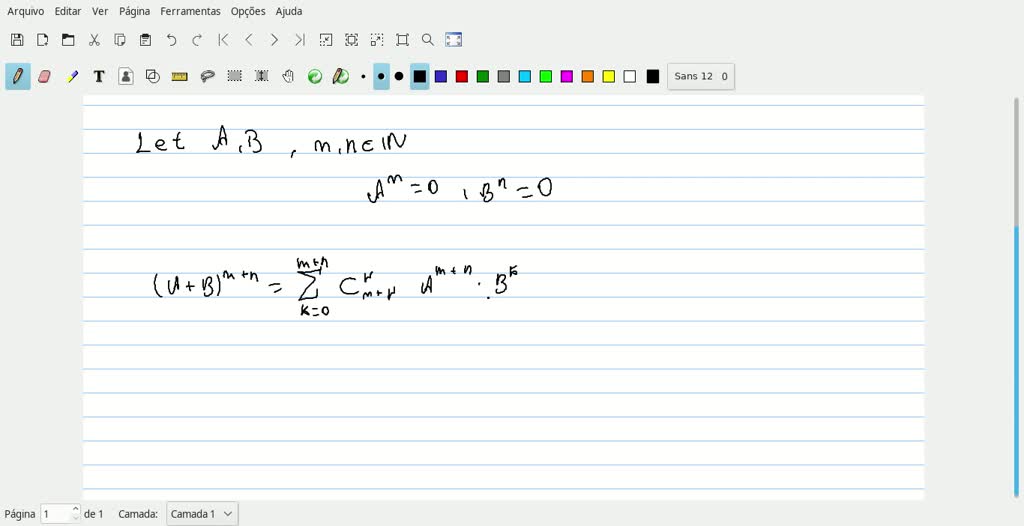 Arquivo Editar Ver Página Ferramentas Opções Ajuda
T Sans 12 0
Let A, B , m, n ∈ ℕ
A^m = 0 , B^n = 0
(A + B)^{m+n} = \sum_{k=0}^{m+n} C_{m+r}^{r} A^{m+n} . B^k
Página 1 de 1 Camada: Camada 1